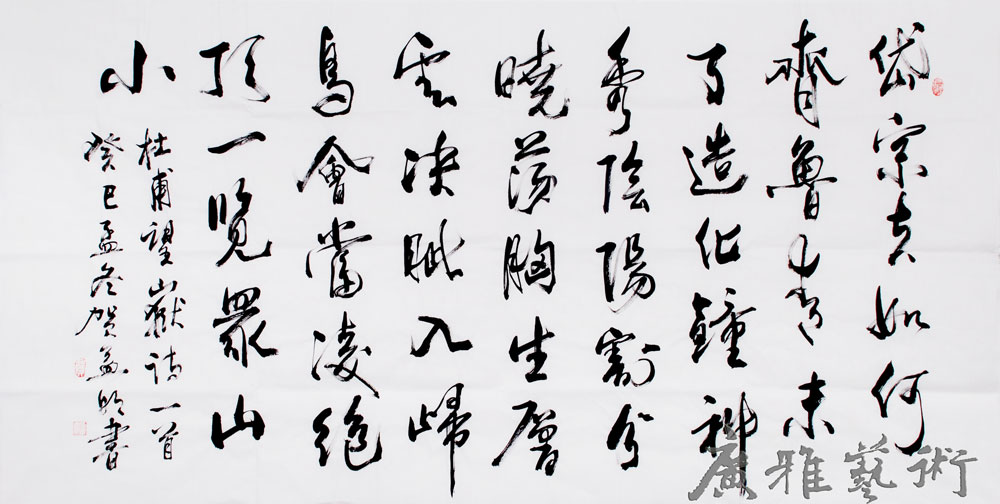 岱宗夫如何
齊魯青未
了造化鐘神
秀陰陽割昏
曉蕩胸生層
雲決眥入歸
鳥會當凌絕
頂一覽眾山
小
杜甫望嶽詩一首
癸巳孟冬賀明書
廣雅藝術